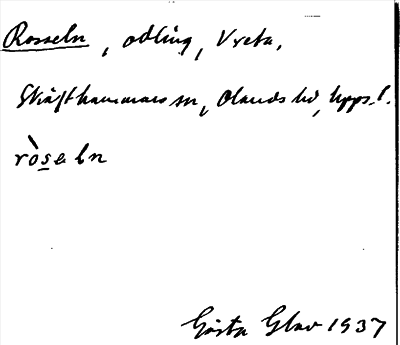 Rosseln, odling, Vreta,
Skäfthammars sn, Olands hd, Upps. l.
ròsealn
Gösta Glav 1937